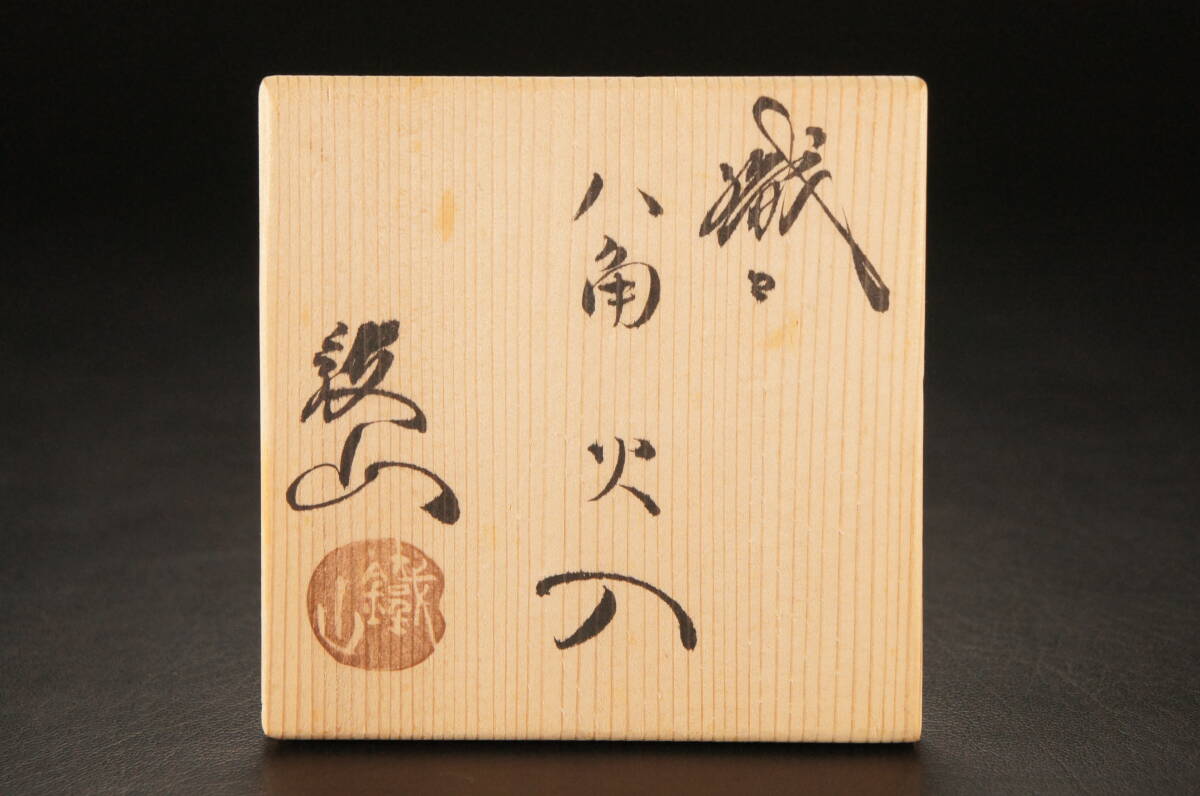 織部
八角火入
鉄山
鐵山